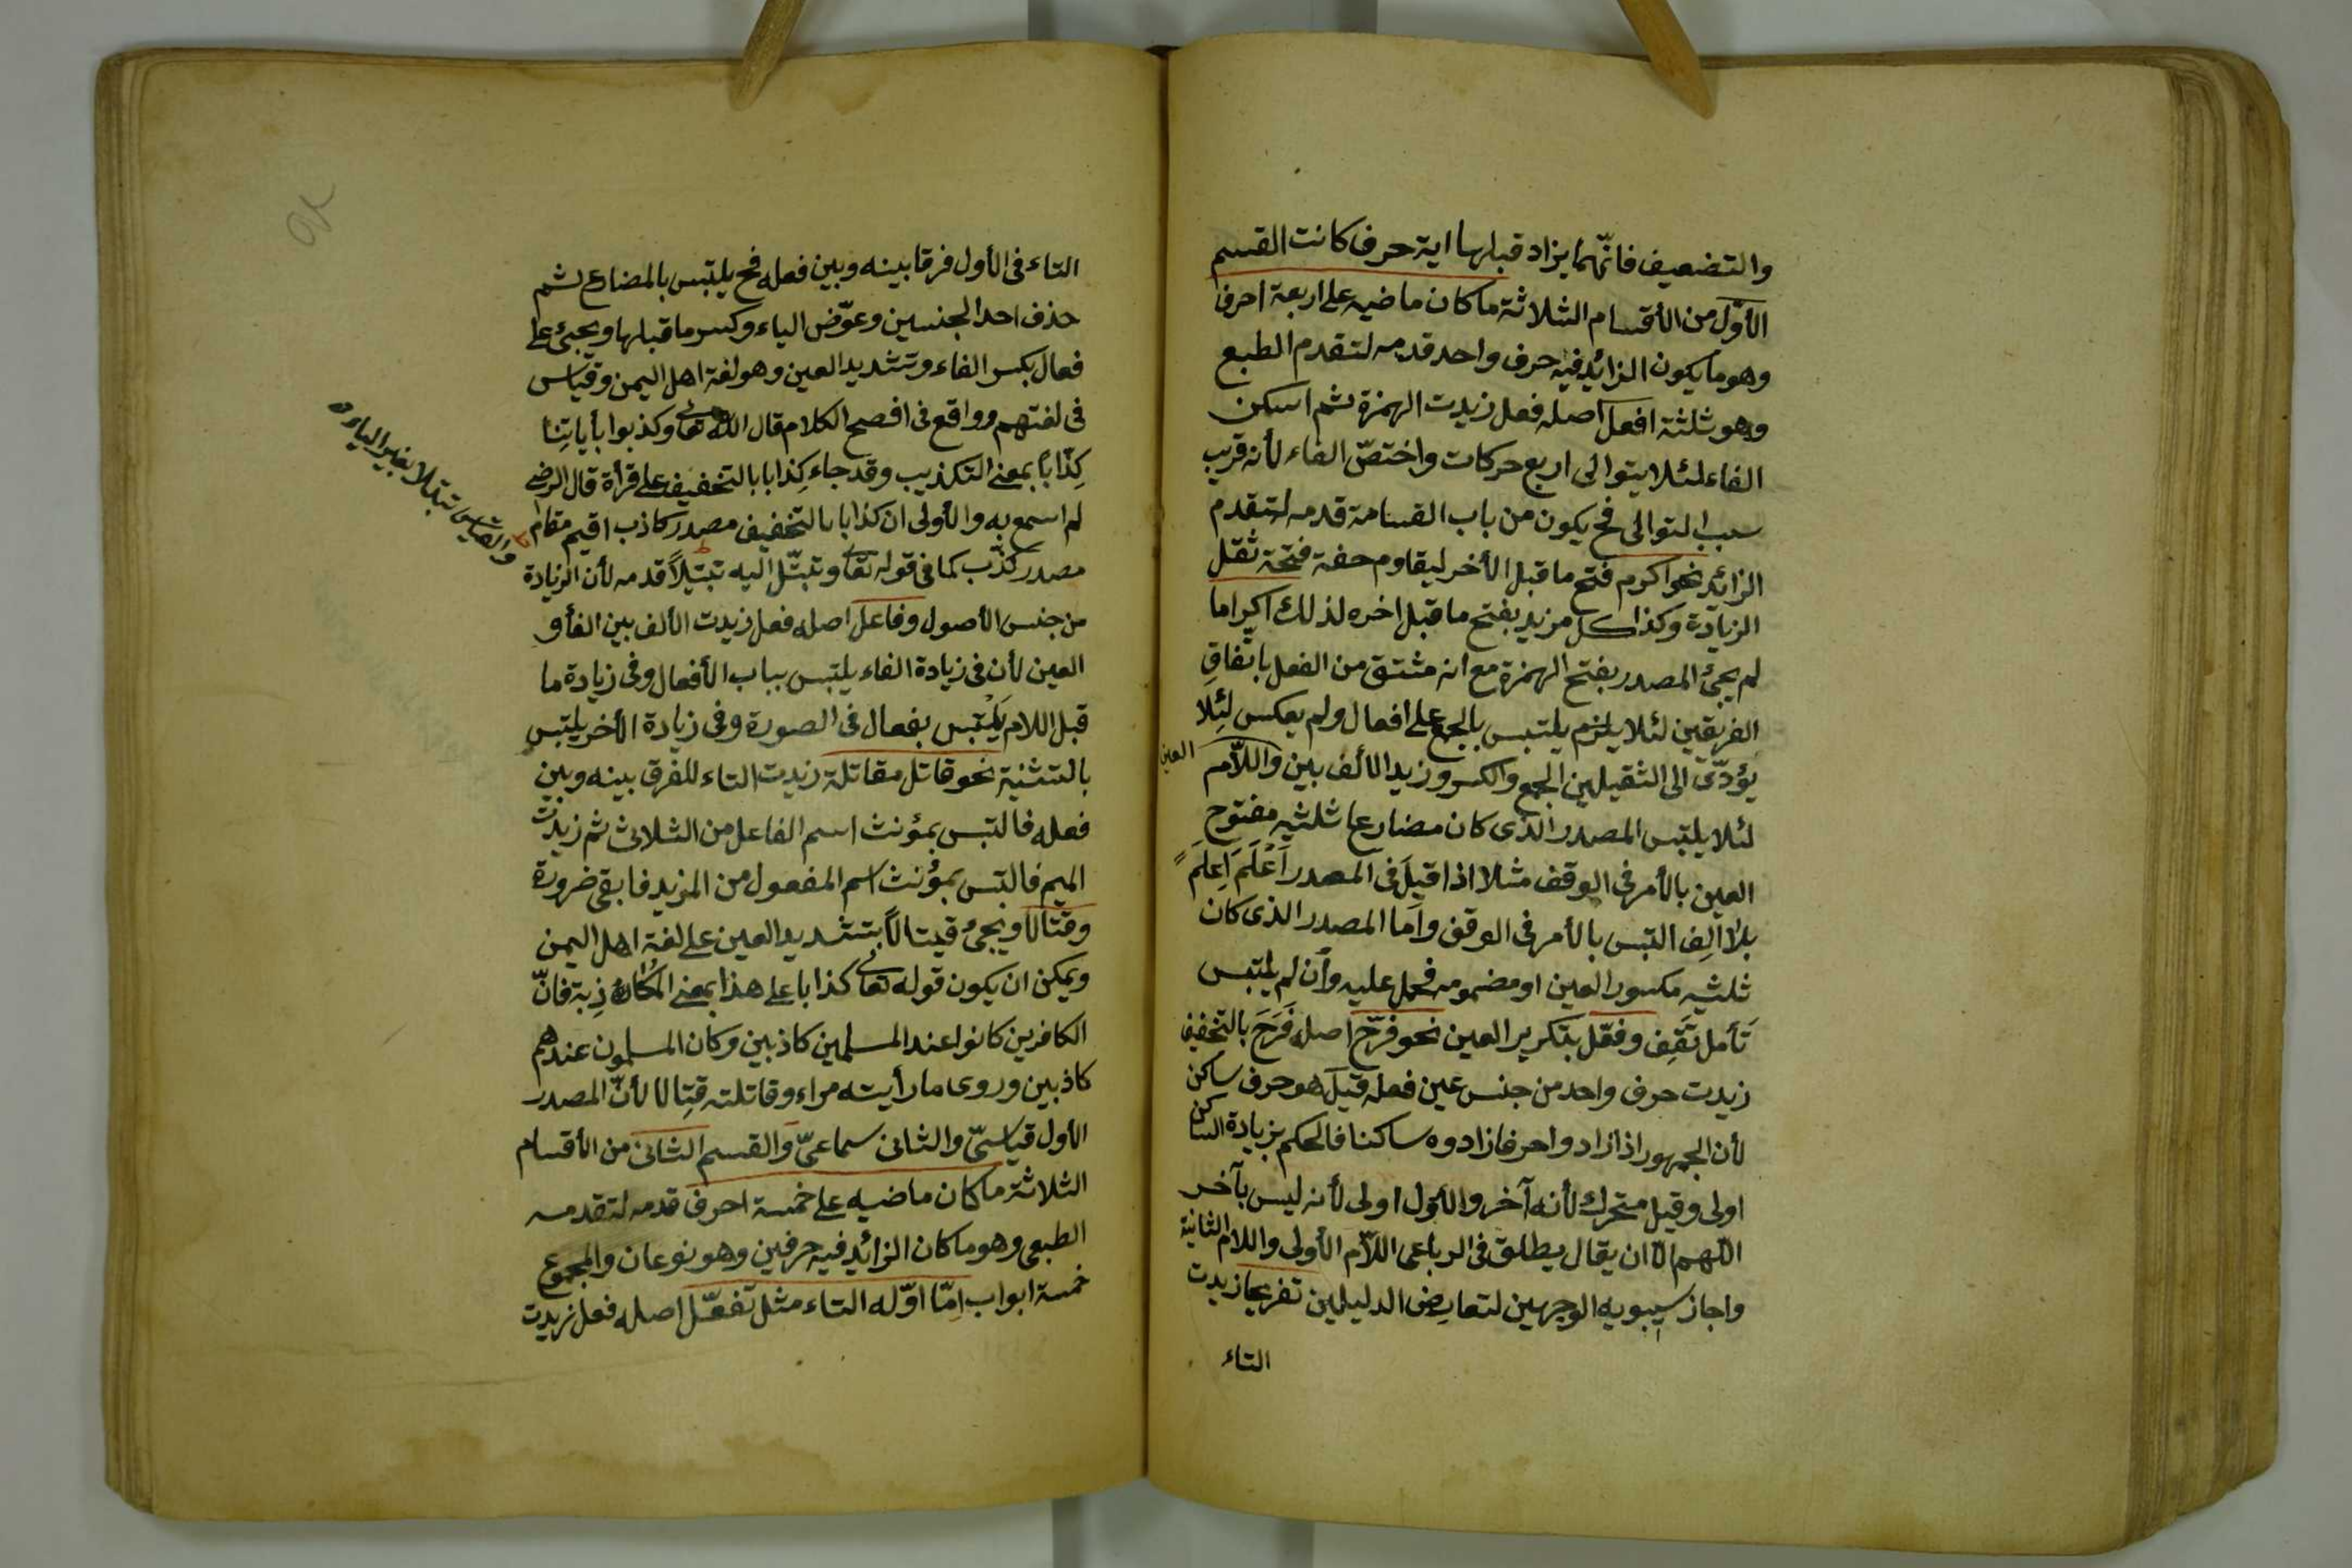 والتضعيف فانّهما يزاد قبلها اية حرف كانت القسم
الأوّل من الأقسام الثلاثة ما كان ماضيه على اربعة احرف
وهو ما يكون الزائد فيه حرف واحد قدمه لتقدم الطبع
وهو ثلثة افعل اصله فعل زيدت الهمزة ثم اسكن
الفاء لئلا يتوالى اربع حركات واختصّ الفاء لأنه قريب
سبب التوالى فح يكون من باب القسامة قدمه لتقدم
الزائد نحو اكرم فتح ما قبل الأخر ليقاوم خفة فتحة ثقل
الزيادة وكذا كل مزيد يفتح ما قبل اخره لذلك اكراما
لم يجئ المصدر بفتح الهمزة مع انه مشتق من الفعل باتّفاقِ
الفريقين لئلا يلزم يلتبس بالجمع على افعال ولم يعكس لئِلا
يؤدّى الى الثقيلين الجمع والكسر وزيد الألف بين واللاّم
العين
لئلا يلتبس المصدر الذى كان مضارعا ثلثيه مفتوح
العين بالأمر فى الوقف مثلا اذا قيلَ فى المصدر اَعْلَمَ اِعلَمَ
بلا الِف التبس بالأمر فى الوقف واَما المصدر الذى كان
ثلثيه مكسور العين او مضمومه فحمل عليه وأن لم يلتبس
تَأمل تَقِف وفعّل بتكرير العين نحو فرّح اصله فَرَحَ بالتخفيف
زيدت حرف واحد من جنس عين فعله قيلَ هو حرف ساكن
لأن الجمهور اذا زادوا حرفا زادوه ساكنا فالحكم بزيادة الساكن
اولى وقيل متحرك لأنه آخر والأول اولى لأنه ليس بآخر
اللّهم الاّ ان يقال يطلق فى الرباعى اللاّم الأولى واللام الثانية
واجاز سيبويه الوجهين لتعارِض الدليلين تفريحا زيدت
التاء
التاء فى الأول فرقا بينه وبين فعله فح يلتبس بالمضارع ثم
حذف احد الجنسين وعوّض الياء وكسر ما قبلها ويجئ على
فعال بكسر الفاء وتشديد العين وهو لغة اهل اليمن وقياس
فى لغتهم وواقع فى افصح الكلام قال الله تعالى وكذبوا بأياتِنا
كِذّاباً بمعنى التكذيب وقد جاء كِذابا بالتخفيف على قرأة قال الرضى
لم اسمع به والأولى ان كذابا بالتخفيف مصدر كاذب اقيم مقام
مصدر كذّب كما فى قوله تعالى وتبتّل اليه تبتيلاً قدمه لأن الزيادة
والقياس تبتلا بغير الياء
من جنس الأصول وفاعل اصله فعل زيدت الألف بين الفأ و
العين لأن فى زيادة الفاء يلتبس بباب الأفعال وفى زيادة ما
قبل اللام يَلْتبس بفعال فى الصورة وفى زيادة الأخر يلتبس
بالتثنية نحو قاتل مقاتلة زيدت التاء للفرق بينه وبين
فعله فالتبس بمؤنث اسم الفاعل من الثلاثى ثم زيدت
الميم فالتبس بمؤنث اسم المفعول من المزيد فابقى ضرورة
وقتالا ويجئ قيتالاً بتشديد العين على لغة اهل اليمن
ويمكن ان يكون قوله تعالى كذابا على هذا بمعنى المُكاذِبة فانّ
الكافرين كانوا عند المسلمين كاذبين وكان المسلمون عندهم
كاذبين وروى مارأيته مراء وقاتلته قتِالا لأنّ المصدر
الأول قياسىّ والثانى سماعىّ والقسم الثانى من الأقسام
الثلاثة ما كان ماضيه على خمسة احرف قدمه لتقدمه
الطبعى وهو ما كان الزائد فيه حرفين وهو نوعان والمجموع
خمسة ابواب اِمّا اوّله التاء مثل تَفعّل اصله فعل زيدت